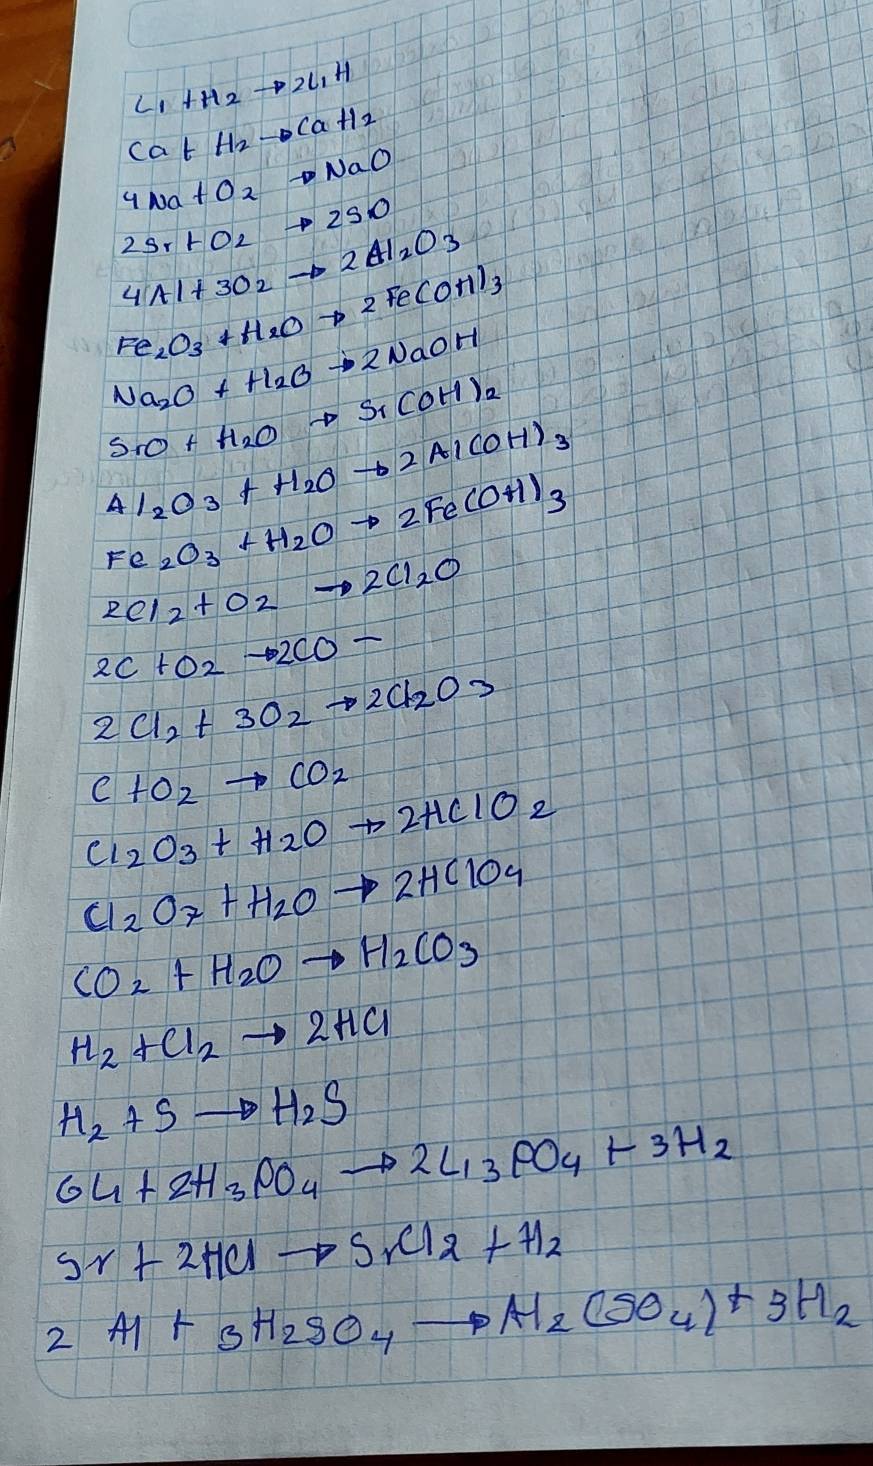 Li + H2 → 2LiH
Ca + H2 → CaH2
4Na + O2 → NaO
2Sr + O2 → 2SO
4Al + 3O2 → 2Al2O3
Fe2O3 + H2O → 2Fe(OH)3
Na2O + H2O → 2NaOH
SrO + H2O → Sr(OH)2
Al2O3 + H2O → 2Al(OH)3
Fe2O3 + H2O → 2Fe(OH)3
2Cl2 + O2 → 2Cl2O
2C + O2 → 2CO —
2Cl2 + 3O2 → 2Cl2O3
C + O2 → CO2
Cl2O3 + H2O → 2HClO2
Cl2O7 + H2O → 2HClO4
CO2 + H2O → H2CO3
H2 + Cl2 → 2HCl
H2 + S → H2S
6Li + 2H3PO4 → 2Li3PO4 + 3H2
Sr + 2HCl → SrCl2 + H2
2 Al + 3H2SO4 → Al2(SO4) + 3H2